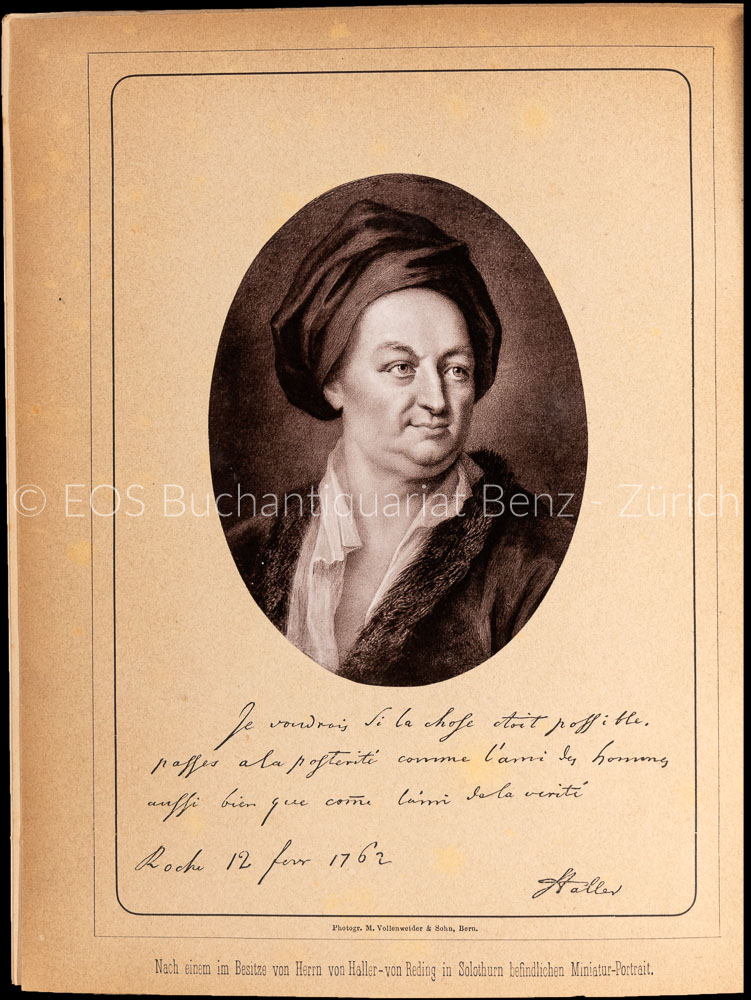 © EOS Buchantiquariat Benz - Zürich
Je voudrois si la chose etoit possible.
passer a la posterité comme l'ami des hommes
aussi bien que com̄e l'ami de la verité
Roche 12 fevr 1762
Haller
Photogr. M. Vollenweider & Sohn, Bern.
Nach einem im Besitze von Herrn von Haller-von Reding in Solothurn befindlichen Miniatur-Portrait.